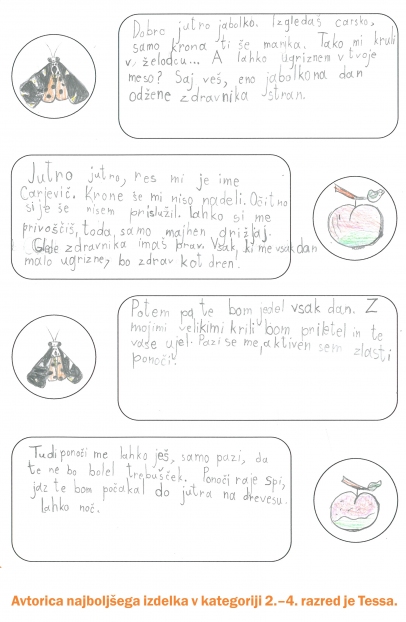 Dobro jutro jabolko. Izgledaš carsko,
samo krona ti še manka. Tako mi kruli
v želodcu... A lahko ugriznem v tvoje
meso? Saj veš, eno jabolko na dan
odžene zdravnika stran.
Jutro jutro, res mi je ime
Carjevič. Krone še mi niso nadeli. Očitno
si je še nisem prislužil. lahko si me
privoščiš, toda, samo majhen grižljaj.
Glede zdravnika imaš prav. Vsak, ki me vsak dan
malo ugrizne, bo zdrav kot dren!
Potem pa te bom jedel vsak dan. Z
mojimi velikimi krili bom priletel in te
vase ujel. Pazi se me, aktiven sem zlasti
ponoči!
Tudi ponoči me lahko ješ, samo pazi, da
te ne bo bolel trebušček. Ponoči raje spi,
jaz te bom počakal do jutra na drevesu.
lahko noč.
Avtorica najboljšega izdelka v kategoriji 2.–4. razred je Tessa.